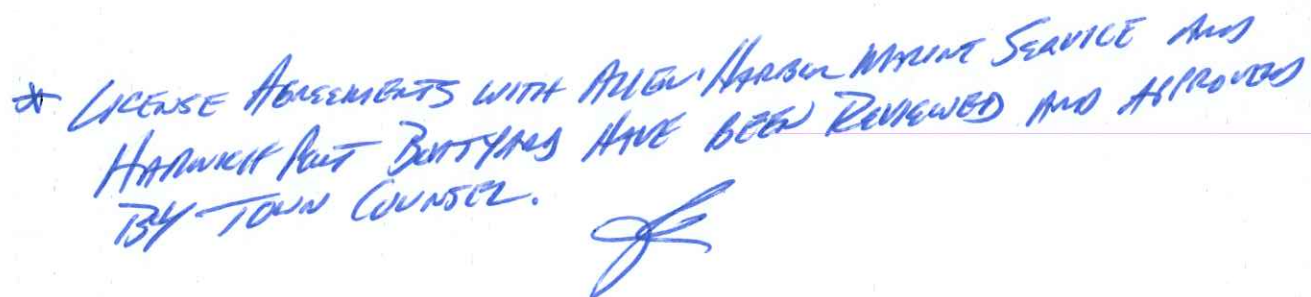 * LICENSE AGREEMENTS WITH ALLEN HARBOR MARINE SERVICE AND
HARWICH PORT BOATYARD HAVE BEEN REVIEWED AND APPROVED
BY TOWN COUNSEL.